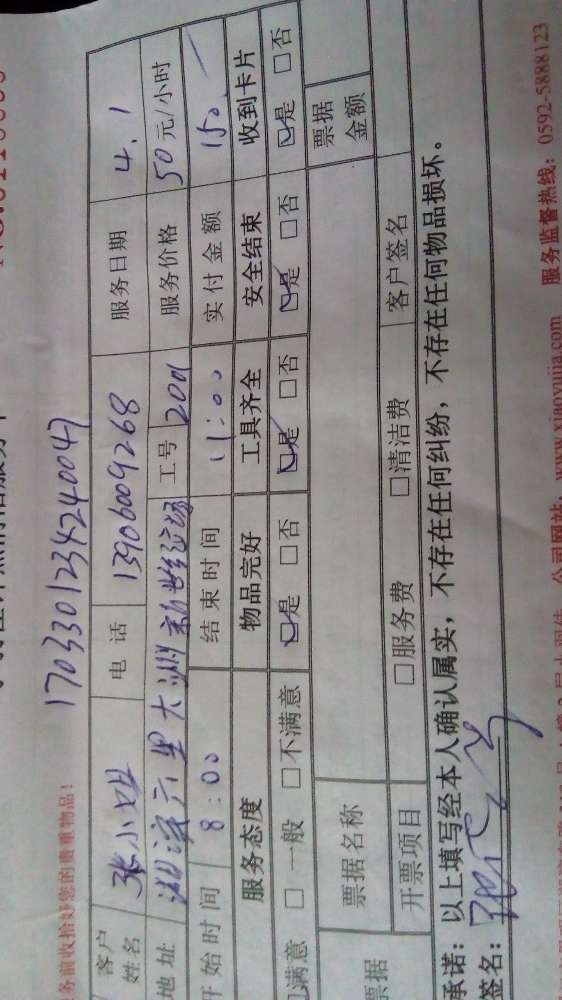 务前收拾好您的贵重物品！
17033012342400047
客户姓名 张小姐 电话 13906009268 服务日期 4.1
地址 湖滨六里大洲新世纪广场 工号 2001 服务价格 50元/小时
开始时间 8:00 结束时间 11:00 实付金额 150
服务态度 物品完好 工具齐全 安全结束 收到卡片
满意 □一般 □不满意 ☑是 □否 ☑是 □否 ☑是 □否 ☑是 □否
票据 票据名称 票据金额
开票项目 □服务费 □清洁费 客户签名
承诺：以上填写经本人确认属实，不存在任何纠纷，不存在任何物品损坏。
签名：
公司网站：www.xiaoyujia.com 服务监督热线：0592-5888123